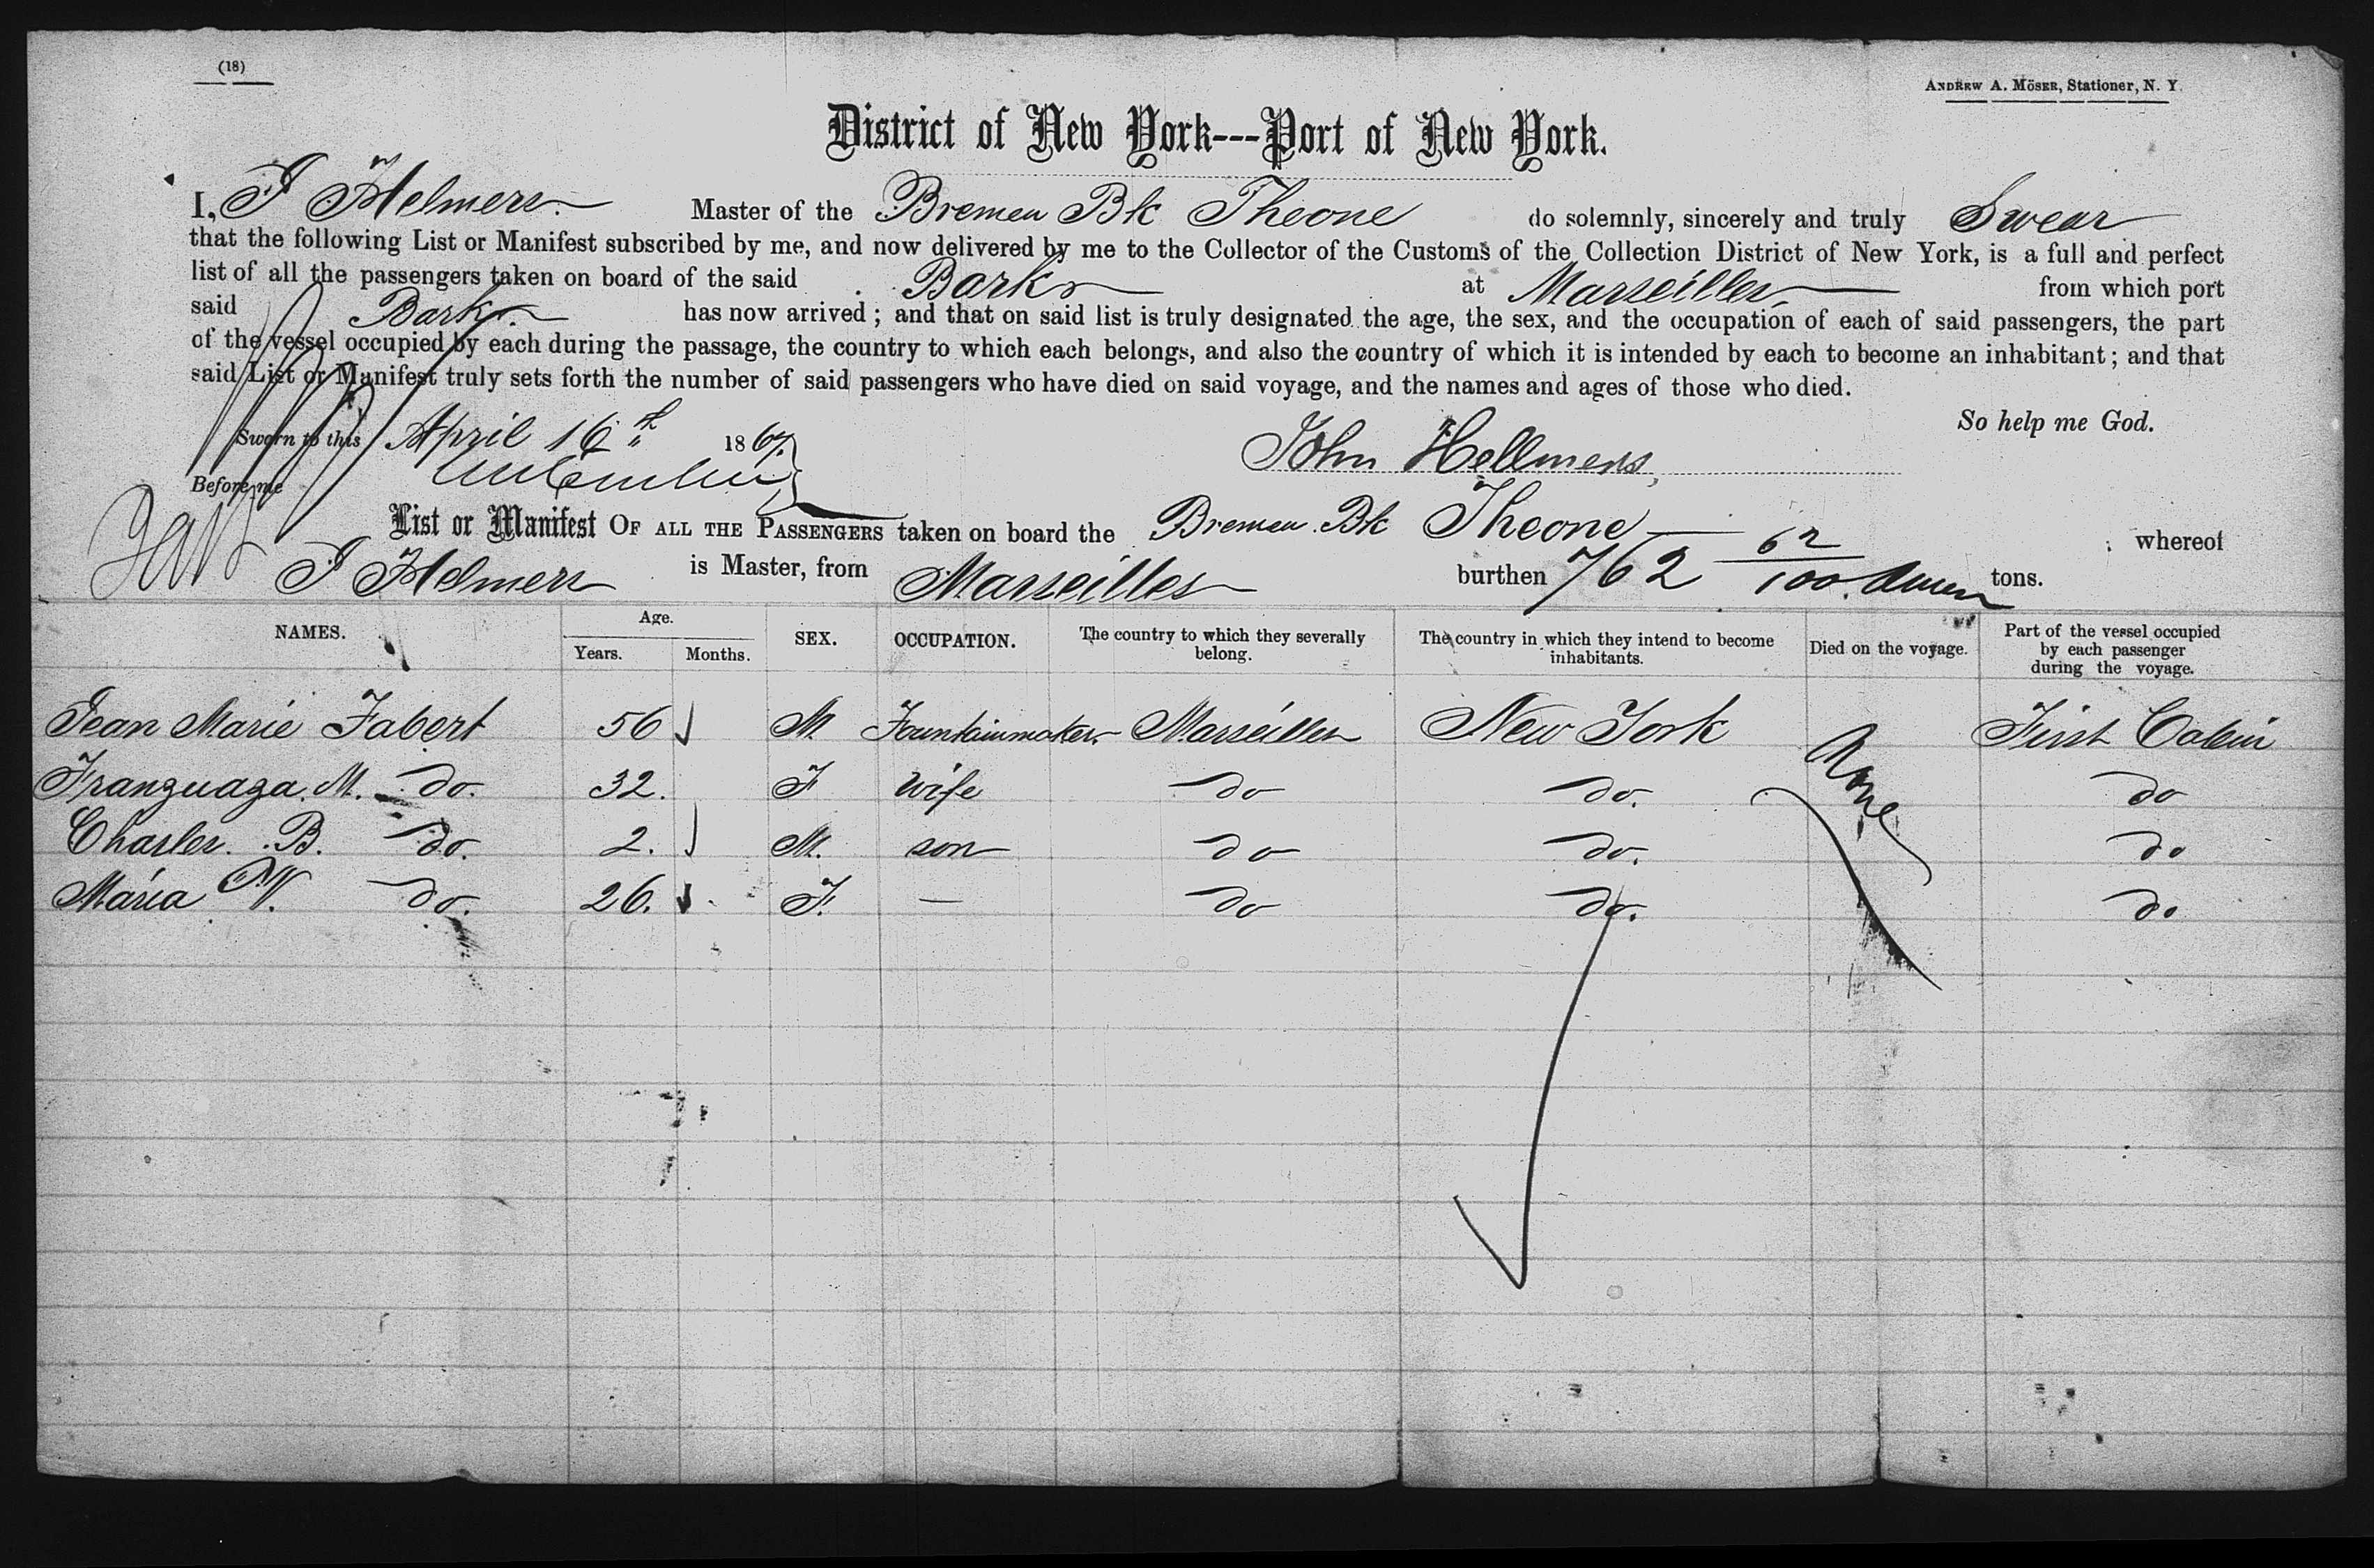 (18)
ANDREW A. MÖSER, Stationer, N. Y.
District of New York---Port of New York.
I, J Helmers Master of the Bremen Bk Theone do solemnly, sincerely and truly Swear
that the following List or Manifest subscribed by me, and now delivered by me to the Collector of the Customs of the Collection District of New York, is a full and perfect
list of all the passengers taken on board of the said Bark at Marseilles from which port
said Bark has now arrived; and that on said list is truly designated the age, the sex, and the occupation of each of said passengers, the part
of the vessel occupied by each during the passage, the country to which each belongs, and also the country of which it is intended by each to become an inhabitant; and that
said List or Manifest truly sets forth the number of said passengers who have died on said voyage, and the names and ages of those who died.
So help me God.
Sworn to this April 16th 1867
John Hellmers
Before me
List or Manifest OF ALL THE PASSENGERS taken on board the Bremen Bk Theone whereof
J Helmers is Master, from Marseilles burthen 762 62/100 tons.
NAMES. Age. Years. Months. SEX. OCCUPATION. The country to which they severally belong. The country in which they intend to become inhabitants. Died on the voyage. Part of the vessel occupied by each passenger during the voyage.
Jean Marie Fabert 56 M Fountainmaker Marseilles New York None First Cabin
Franguaga. M. do. 32. F wife do do. do
Charles. B. do. 2. M. son do do. do
Maria do. 26. F. — do do. do